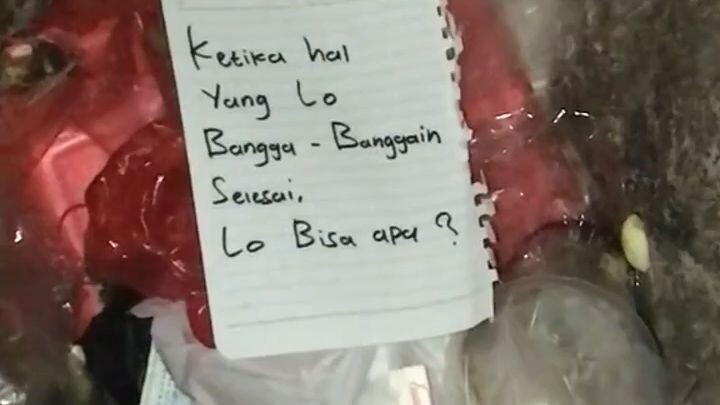 Ketika hal
Yang Lo
Bangga - Banggain
Selesai,
Lo Bisa apa ?